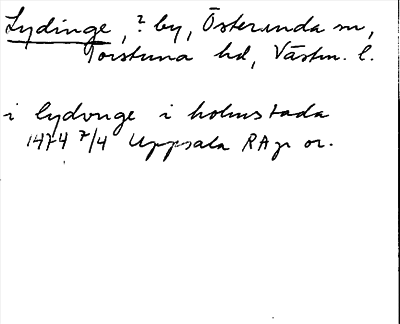 Lydinge, ? by, Österunda sn,
Torstuna hd, Västm. l.
i lydunge i holmstada
1474 7/4 Uppsala RAp or.